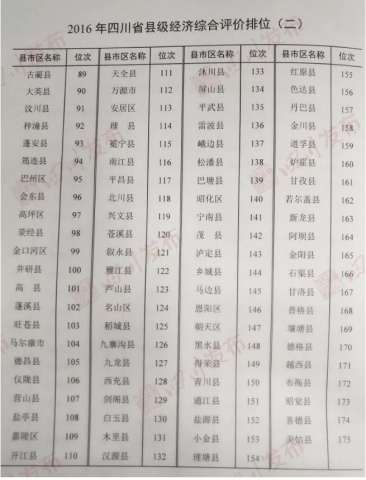 2016年四川省县级经济综合评价排位（二）
县市区名称 位次 县市区名称 位次 县市区名称 位次 县市区名称 位次
古蔺县 89 天全县 111 沐川县 133 红原县 155
大英县 90 万源市 112 屏山县 134 色达县 156
汶川县 91 安居区 113 平武县 135 丹巴县 157
梓潼县 92 理县 114 雷波县 136 金川县 158
蓬安县 93 冕宁县 115 峨边县 137 道孚县 159
筠连县 94 南江县 116 松潘县 138 炉霍县 160
巴州区 95 平昌县 117 巴塘县 139 甘孜县 161
会东县 96 北川县 118 昭化区 140 若尔盖县 162
高坪区 97 兴文县 119 宁南县 141 新龙县 163
荥经县 98 苍溪县 120 茂县 142 阿坝县 164
金口河区 99 叙永县 121 泸定县 143 金阳县 165
井研县 100 雅江县 122 乡城县 144 石渠县 166
高县 101 芦山县 123 马边县 145 甘洛县 167
蓬溪县 102 名山区 124 恩阳区 146 普格县 168
旺苍县 103 稻城县 125 朝天区 147 壤塘县 169
马尔康市 104 九寨沟县 126 黑水县 148 德格县 170
德昌县 105 九龙县 127 得荣县 149 越西县 171
仪陇县 106 西充县 128 青川县 150 布拖县 172
营山县 107 剑阁县 129 通江县 151 昭觉县 173
盐亭县 108 白玉县 130 盐源县 152 喜德县 174
嘉陵区 109 木里县 131 小金县 153 美姑县 175
开江县 110 汉源县 132 理塘县 154